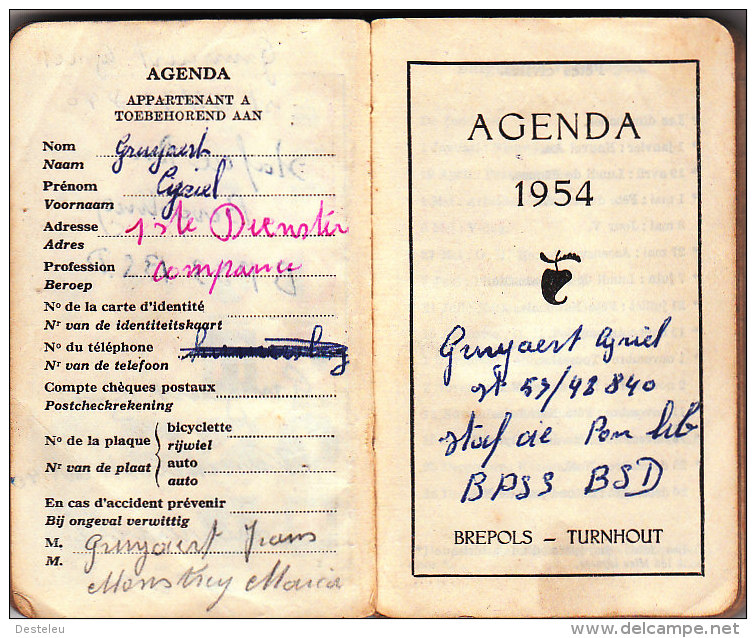 AGENDA
APPARTENANT A
TOEBEHOREND AAN
Nom Gruyaert
Naam
Prénom Cyriel
Voornaam
Adresse 1ste Dienstir
Adres
Profession Companie
Beroep
No de la carte d'identité
Nr van de identiteitskaart
No du téléphone
Nr van de telefoon
Compte chèques postaux
Postcheckrekening
No de la plaque bicyclette
rijwiel
Nr van de plaat auto
auto
En cas d'accident prévenir
Bij ongeval verwittig
M. Gruyaert Frans
M. Maria
AGENDA
1954
Gruyaert Cyriel
53/48840
staf cie
BPSS BSD
BREPOLS – TURNHOUT
Desteleu
delcampe.net